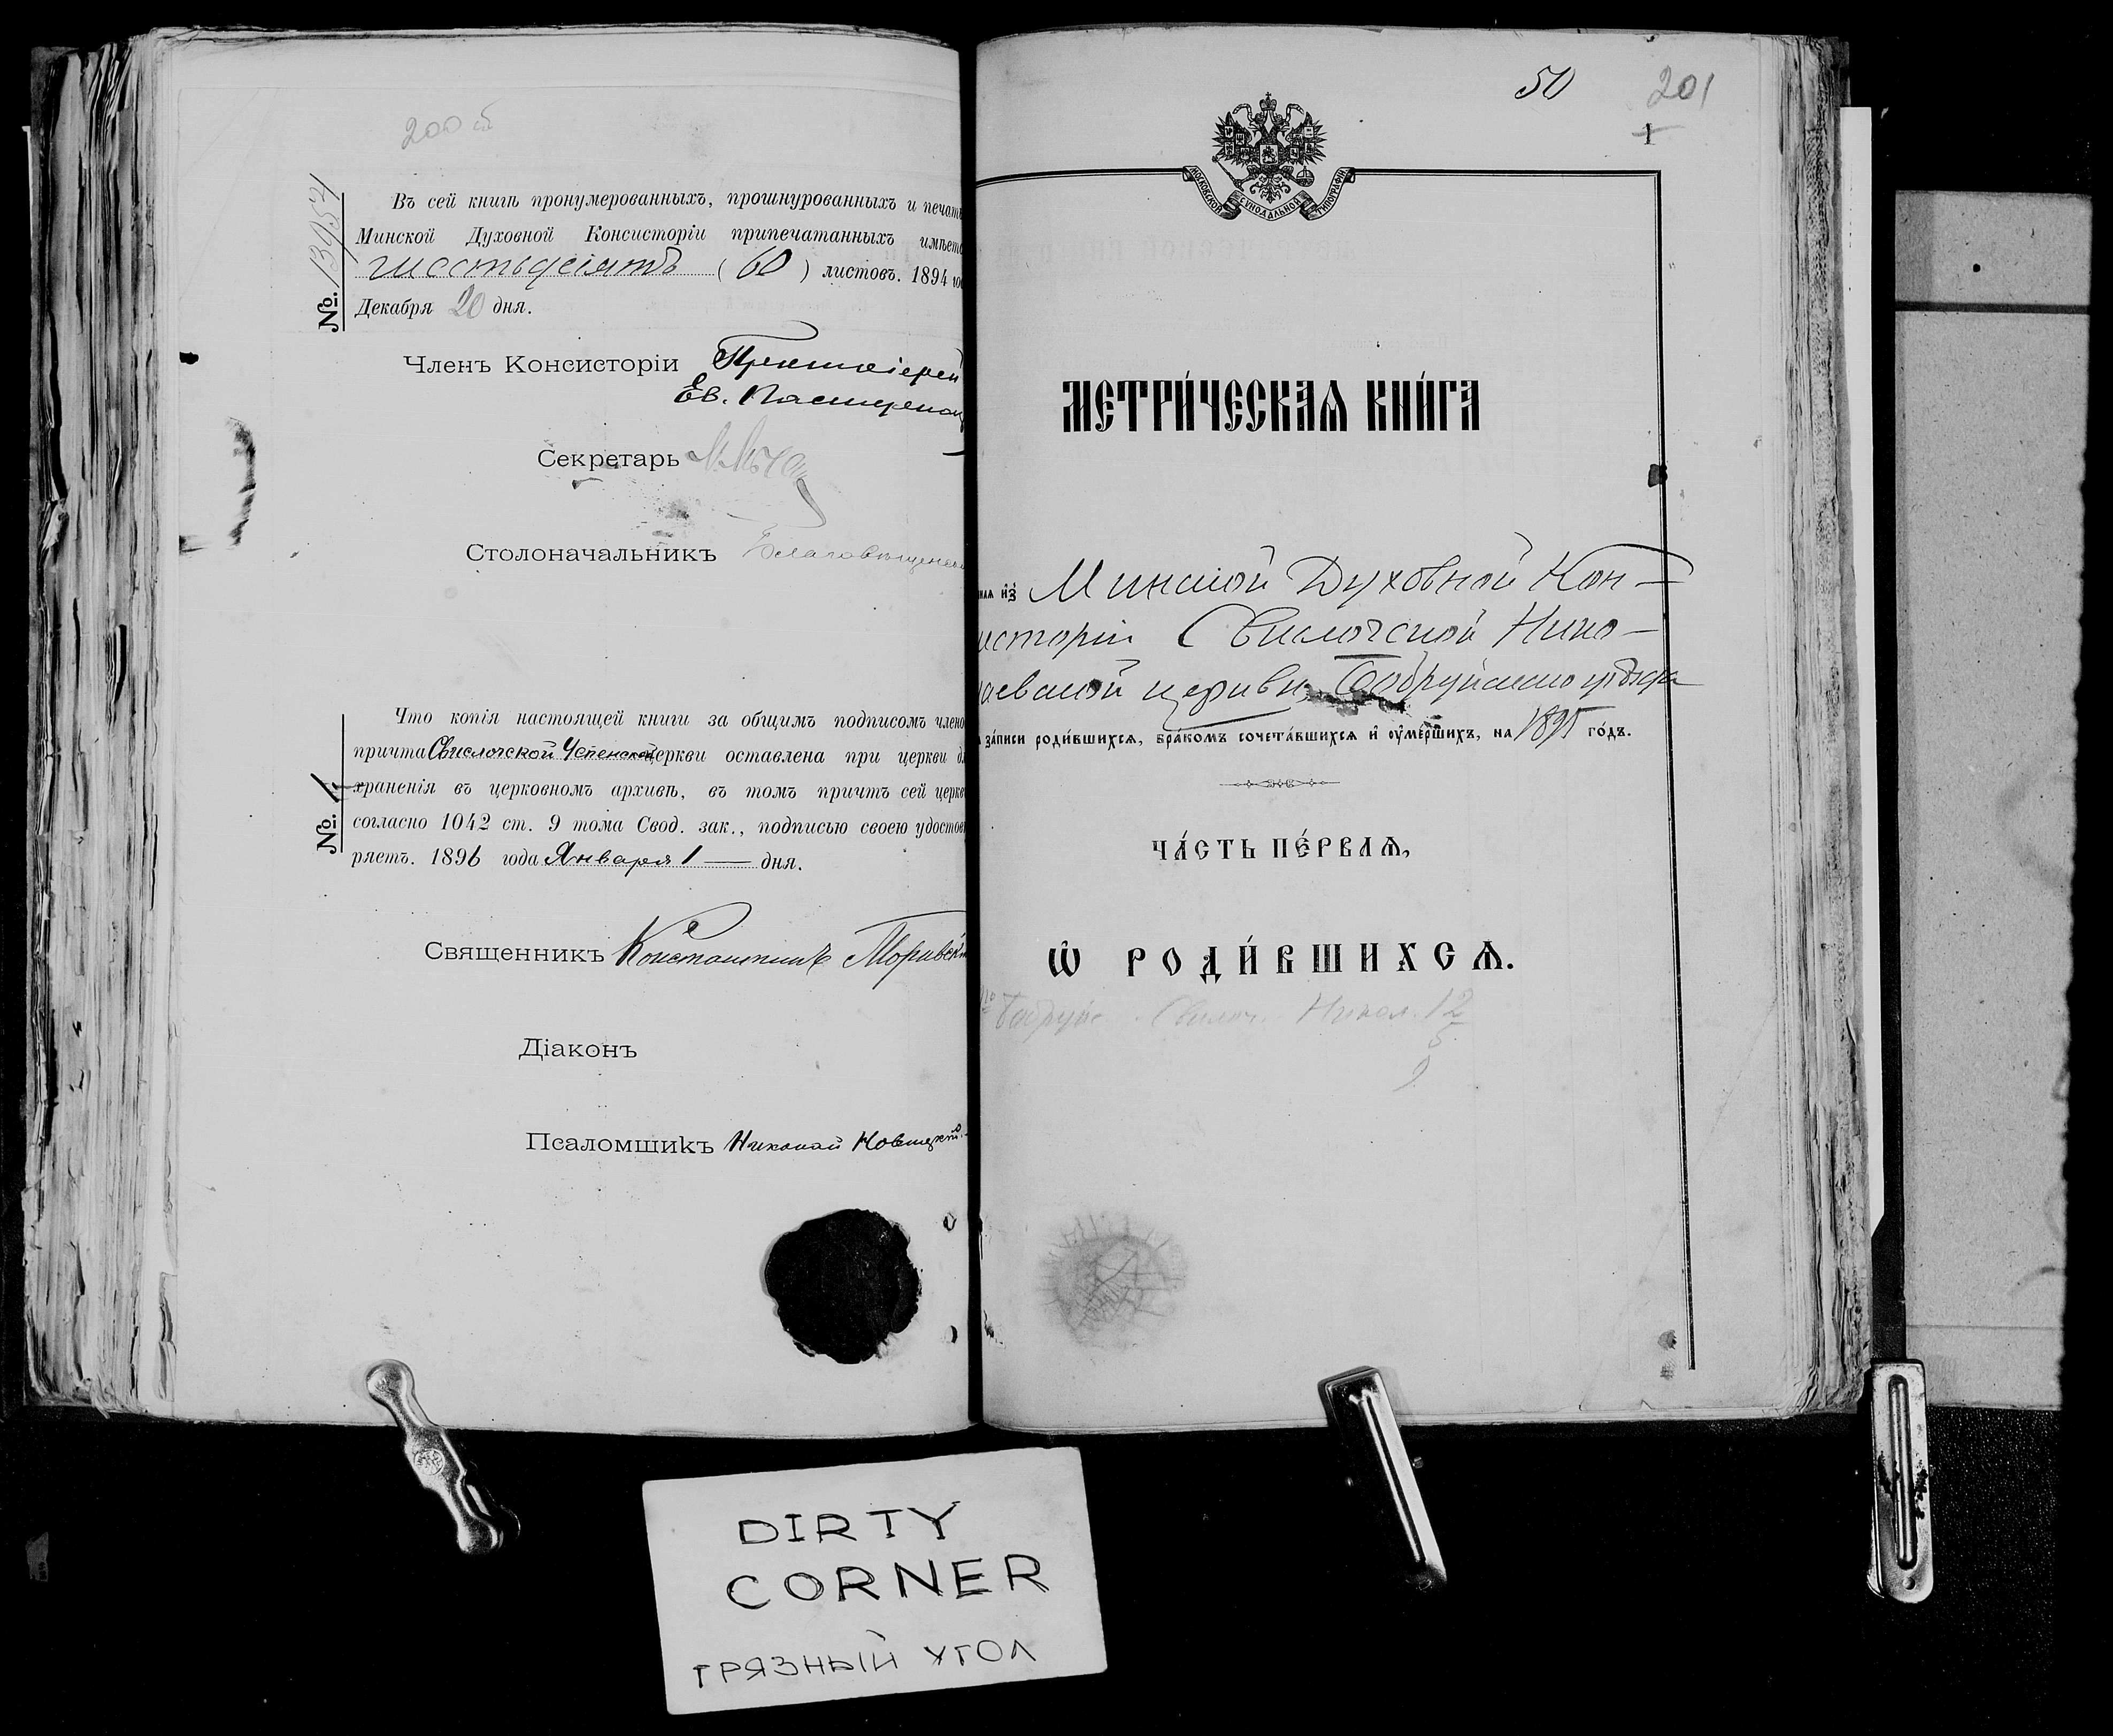 200 об
№. 13954
Въ сей книгѣ пронумерованныхъ, прошнурованныхъ и печат
Минской Духовной Консисторіи припечатанныхъ имѣет
шестьдесятъ (60) листовъ. 1894 го
Декабря 20 дня.
Членъ Консисторіи Протоіерей
Ев.
Секретарь
Столоначальникъ Благовѣщенс
№. 1
Что копія настоящей книги за общимъ подписомъ члено
причта Свислочской Успенской церкви оставлена при церкви д
храненія въ церковномъ архивѣ, въ томъ причтъ сей церк
согласно 1042 ст. 9 тома Свод. зак., подписью своею удостов
ряетъ. 1896 года Января 1 — дня.
Священникъ Константинъ
Діаконъ
Псаломщикъ Николай Новицкій
50 201
1
МОСКОВСКОЙ СѴНОДАЛЬНОЙ ТИПОГРАФІИ
МЕТРИ́ЧЕСКАѦ КНИ́ГА
наѧ и҆з̾ Минской Духовной Кон-
систоріи Свислочской Нико-
лаевской церкви, Бобруйскаго уѣзда
за́писи роди́вшихсѧ, бра́комъ сочета́вшихсѧ и҆ ᲂу҆ме́ршихъ, на 1895 го́дъ.
ЧА́СТЬ ПЕ́РВАѦ,
Ѽ РОДИ́ВШИХСѦ.
Бобруйс. Свислоч. Никол. 12
5
9
DIRTY
CORNER
ГРЯЗНЫЙ УГОЛ